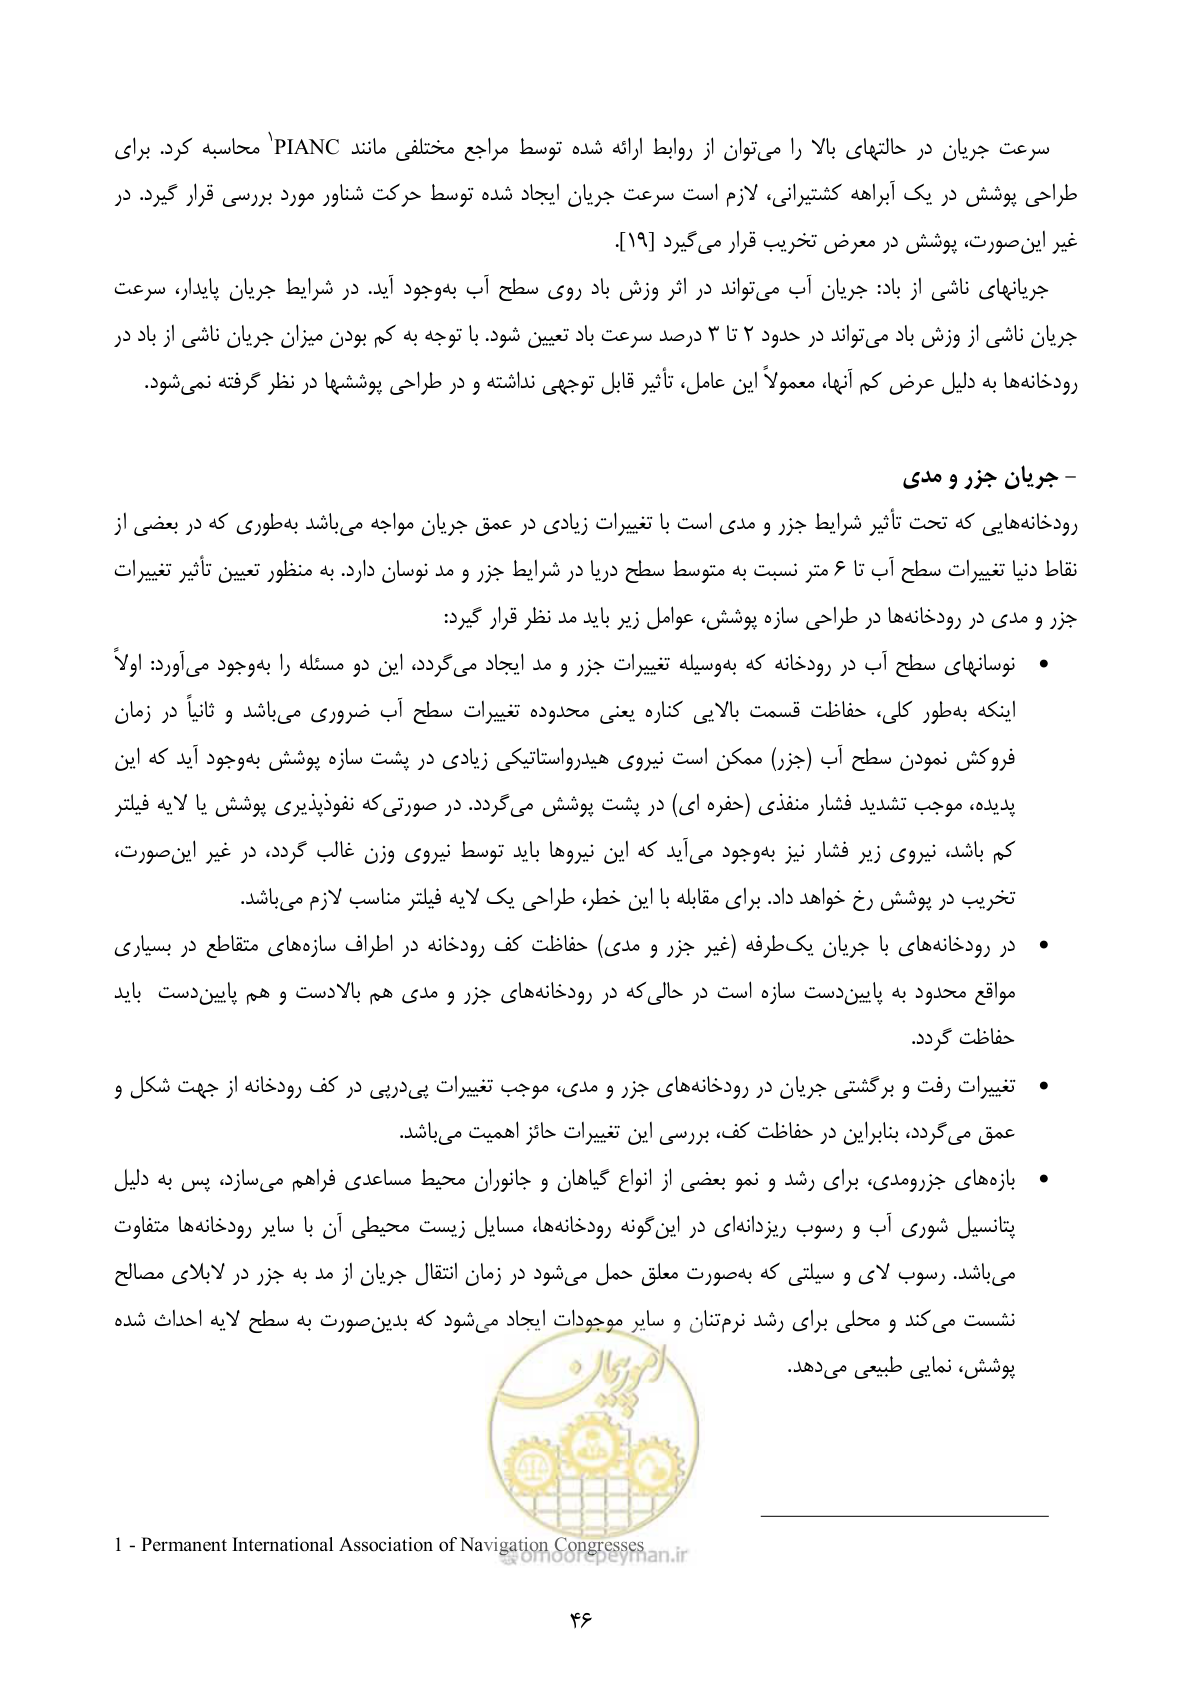 سرعت جریان در حالتهای بالا را می‌توان از روابط ارائه شده توسط مراجع مختلفی مانند PIANC۱ محاسبه کرد. برای
طراحی پوشش در یک آبراهه کشتیرانی، لازم است سرعت جریان ایجاد شده توسط حرکت شناور مورد بررسی قرار گیرد. در
غیر این‌صورت، پوشش در معرض تخریب قرار می‌گیرد [۱۹].
جریانهای ناشی از باد: جریان آب می‌تواند در اثر وزش باد روی سطح آب به‌وجود آید. در شرایط جریان پایدار، سرعت
جریان ناشی از وزش باد می‌تواند در حدود ۲ تا ۳ درصد سرعت باد تعیین شود. با توجه به کم بودن میزان جریان ناشی از باد در
رودخانه‌ها به دلیل عرض کم آنها، معمولاً این عامل، تأثیر قابل توجهی نداشته و در طراحی پوششها در نظر گرفته نمی‌شود.
– جریان جزر و مدی
رودخانه‌هایی که تحت تأثیر شرایط جزر و مدی است با تغییرات زیادی در عمق جریان مواجه می‌باشد به‌طوری که در بعضی از
نقاط دنیا تغییرات سطح آب تا ۶ متر نسبت به متوسط سطح دریا در شرایط جزر و مد نوسان دارد. به منظور تعیین تأثیر تغییرات
جزر و مدی در رودخانه‌ها در طراحی سازه پوشش، عوامل زیر باید مد نظر قرار گیرد:
• نوسانهای سطح آب در رودخانه که به‌وسیله تغییرات جزر و مد ایجاد می‌گردد، این دو مسئله را به‌وجود می‌آورد: اولاً
اینکه به‌طور کلی، حفاظت قسمت بالایی کناره یعنی محدوده تغییرات سطح آب ضروری می‌باشد و ثانیاً در زمان
فروکش نمودن سطح آب (جزر) ممکن است نیروی هیدرواستاتیکی زیادی در پشت سازه پوشش به‌وجود آید که این
پدیده، موجب تشدید فشار منفذی (حفره ای) در پشت پوشش می‌گردد. در صورتی‌که نفوذپذیری پوشش یا لایه فیلتر
کم باشد، نیروی زیر فشار نیز به‌وجود می‌آید که این نیروها باید توسط نیروی وزن غالب گردد، در غیر این‌صورت،
تخریب در پوشش رخ خواهد داد. برای مقابله با این خطر، طراحی یک لایه فیلتر مناسب لازم می‌باشد.
• در رودخانه‌های با جریان یک‌طرفه (غیر جزر و مدی) حفاظت کف رودخانه در اطراف سازه‌های متقاطع در بسیاری
مواقع محدود به پایین‌دست سازه است در حالی‌که در رودخانه‌های جزر و مدی هم بالادست و هم پایین‌دست باید
حفاظت گردد.
• تغییرات رفت و برگشتی جریان در رودخانه‌های جزر و مدی، موجب تغییرات پی‌درپی در کف رودخانه از جهت شکل و
عمق می‌گردد، بنابراین در حفاظت کف، بررسی این تغییرات حائز اهمیت می‌باشد.
• بازه‌های جزرومدی، برای رشد و نمو بعضی از انواع گیاهان و جانوران محیط مساعدی فراهم می‌سازد، پس به دلیل
پتانسیل شوری آب و رسوب ریزدانه‌ای در این‌گونه رودخانه‌ها، مسایل زیست محیطی آن با سایر رودخانه‌ها متفاوت
می‌باشد. رسوب لای و سیلتی که به‌صورت معلق حمل می‌شود در زمان انتقال جریان از مد به جزر در لابلای مصالح
نشست می‌کند و محلی برای رشد نرم‌تنان و سایر موجودات ایجاد می‌شود که بدین‌صورت به سطح لایه احداث شده
پوشش، نمایی طبیعی می‌دهد.
امور پیمان
1 - Permanent International Association of Navigation Congresses
@omoorepeyman.ir
۴۶